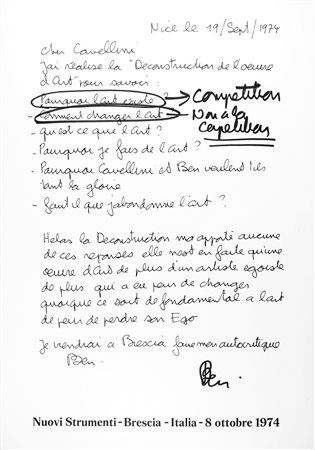 Nice le 19/Sept/1974
cher Cavellini
J'ai réalise la "Deconstruction de l'oeuvre
d'Art" pour savoir :
- Pourquoi l'art existe ? → Competition
- Comment changer l'Art → Non a la
competition
- qu'est ce que l'Art ?
- Pourquoj je fais de l'art ?
- Pourquoi Cavellini et Ben veulent ils
tant la gloire
- faut il que j'abandonne l'art ?
Helas la Deconstruction m'a apporté aucune
de ces reponses elle n'est en faite qu'une
oeuvre d'Art de plus d'un artiste egoiste
de plus qui a eu peur de changer
quoique ce soit de fondamental a l'art
de peur de perdre son Ego
Je viendrai a Brescia faire mon autocritique
Ben.
Ben.
Nuovi Strumenti - Brescia - Italia - 8 ottobre 1974